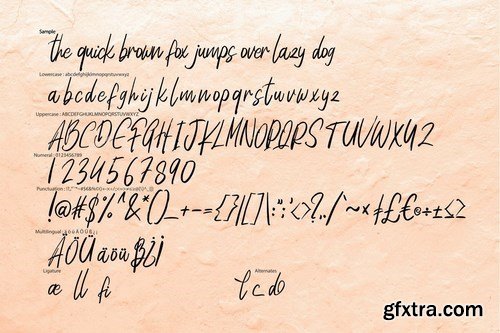 Sample
the quick brown fox jumps over lazy dog
Lowercase : abcdefghijklmnopqrstuvwxyz
a b c d e f g h i j k l m n o p q r s t u v w x y z
Uppercase : ABCDEFGHIJKLMNOPQRSTUVWXYZ
A B C D E F G H I J K L M N O P Q R S T U V W X Y Z
Numeral : 0123456789
1 2 3 4 5 6 7 8 9 0
Punctuation :
! @ # $ % ^ & * ( ) _ + - = { } | [ ] \ : " ; ' < > ? , . / ` ~ × ‡ £ € © ÷ ± ≤ ≥
Multilingual : ä ö ü Ä Ö Ü ß ¿ ¡
Ä Ö Ü ä ö ü ß ¿ ¡
Ligature Alternates
æ ll fi l c d
gfxtra.com